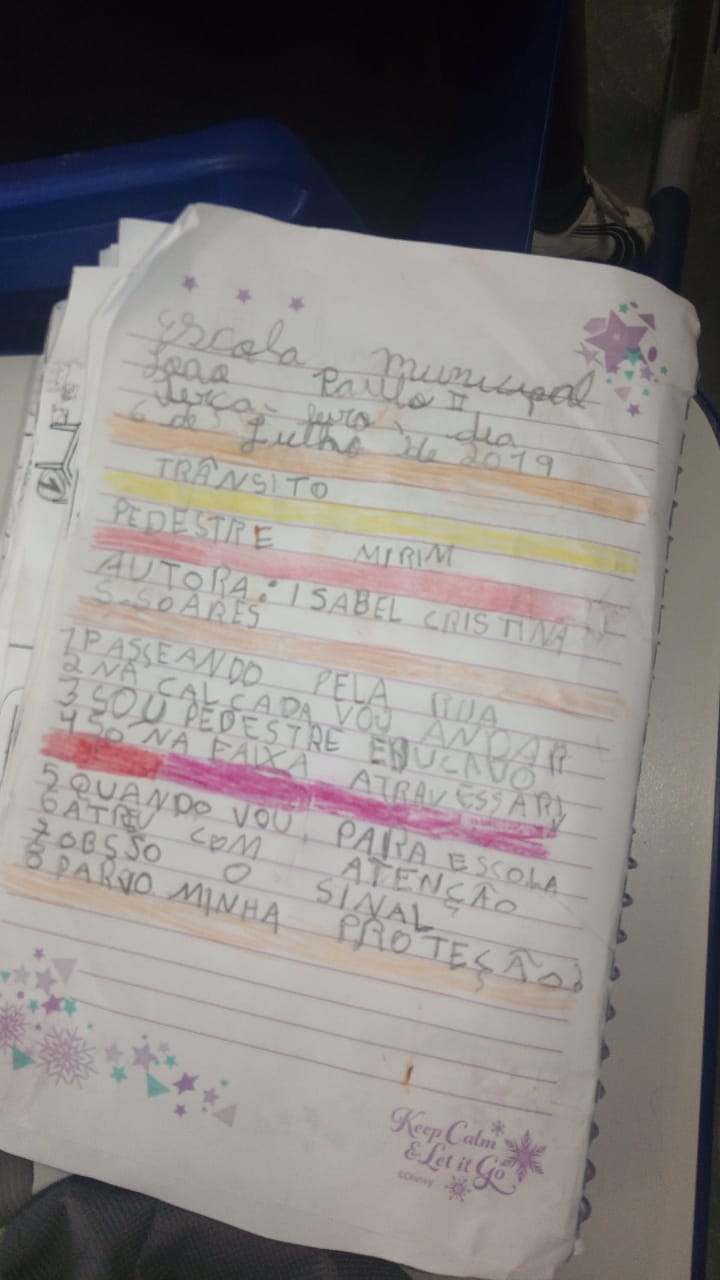 Escola Municipal
João Paulo II
Terça-feira, dia
6 de Julho de 2019
TRÂNSITO
PEDESTRE MIRIM
AUTORA: ISABEL CRISTINA
S. SOARES
1 PASSEANDO PELA RUA
2 NA CALCADA VOU ANDAR
3 SOU PEDESTRE EDUCADO
4 SO NA FAIXA ATRAVESSAR
5 QUANDO VOU PARA ESCOLA
6 COM ATENÇÃO
7 O SINAL
8 MINHA PROTEÇÃO
Keep Calm
& Let it Go
©Disney